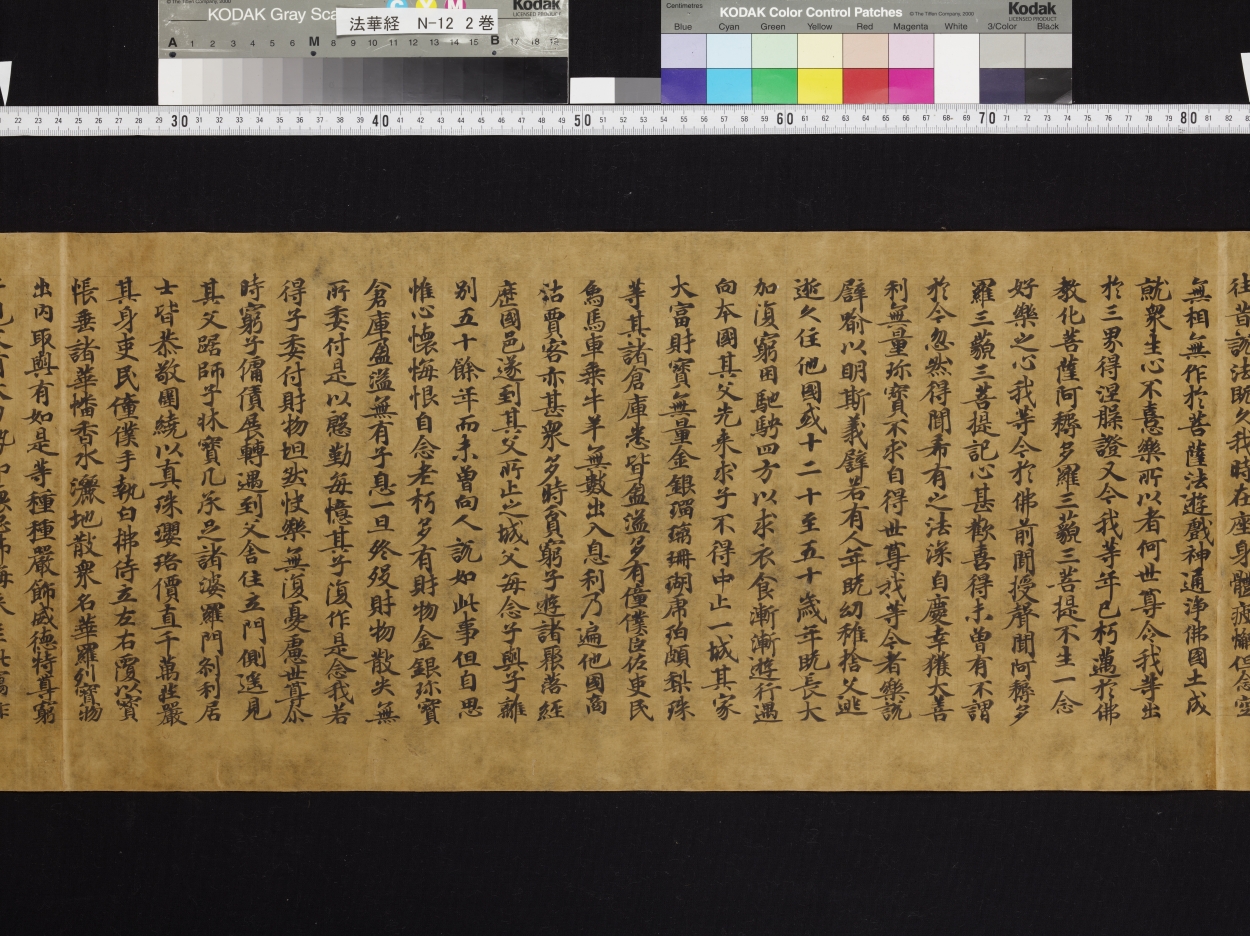 © The Tiffen Company, 2000
KODAK Gray Sca
C Y M
Kodak
LICENSED PRODUCT
法華経 N-12 2巻
A 1 2 3 4 5 6 M 8 9 10 11 12 13 14 15 B 17 18 19
Centimetres
KODAK Color Control Patches
© The Tiffen Company, 2000
Kodak
LICENSED PRODUCT
Blue Cyan Green Yellow Red Magenta White 3/Color Black
22 23 24 25 26 27 28 29 30 31 32 33 34 35 36 37 38 39 40 41 42 43 44 45 46 47 48 49 50 51 52 53 54 55 56 57 58 59 60 61 62 63 64 65 66 67 68 69 70 71 72 73 74 75 76 77 78 79 80 81 82
往昔説法既久我時在座身體疲懈但念空
無相無作於菩薩法遊戲神通淨佛國土成
就衆生心不憙樂所以者何世尊令我等出
於三界得涅槃證又今我等年已朽邁於佛
教化菩薩阿耨多羅三藐三菩提不生一念
好樂之心我等今於佛前聞授聲聞阿耨多
羅三藐三菩提記心甚歡喜得未曾有不謂
於今忽然得聞希有之法深自慶幸獲大善
利無量珎寶不求自得世尊我等今者樂説
譬喻以明斯義譬若有人年既幼稚捨父逃
逝久住他國或十二十至五十歲年既長大
加復窮困馳騁四方以求衣食漸漸遊行遇
向本國其父先来求子不得中止一城其家
大富財寶無量金銀瑠璃珊瑚虎珀頗梨珠
等其諸倉庫悉皆盈溢多有僮僕臣佐吏民
烏馬車乗牛羊無數出入息利乃遍他國商
沽賈客亦甚衆多時貧窮子遊諸聚落経
歴國邑遂到其父所止之城父毎念子與子離
別五十餘年而未曾向人説如此事但自思
惟心懐悔恨自念老朽多有財物金銀珎寶
倉庫盈溢無有子息一旦終歿財物散失無
所委付是以慇勤毎憶其子復作是念我若
得子委付財物坦然快樂無復憂慮世尊尒
時窮子傭債展轉遇到父舎住立門側遥見
其父踞師子牀寶几承足諸婆羅門刹利居
士皆恭敬圍繞以真珠瓔珞價直千萬莊嚴
其身吏民僮僕手執白拂侍立左右覆以寶
帳垂諸華幡香水灑地散衆名華羅列寶物
出内取與有如是等種種嚴飾威德特尊窮